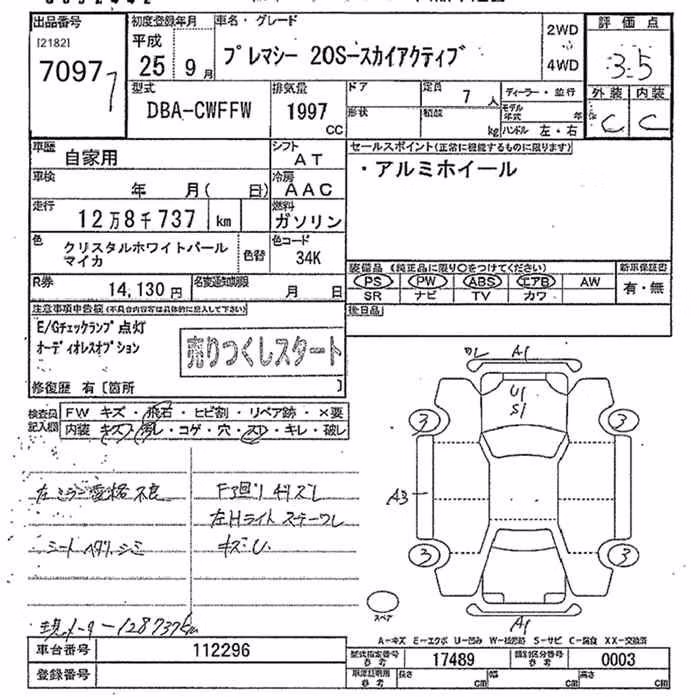 出品番号
[2182]
7097
7
初度登録年月
平成
25 9月
車名・グレード
プレマシー 20S-スカイアクティブ
2WD
4WD
評価点
3.5
外装 内装
C C
型式
DBA-CWFFW
排気量
1997
CC
ドア
形状
定員
7 人
積載
kg
ディーラー・並行
モデル年式 年
ハンドル 左・右
車歴
自家用
シフト
AT
車検
年 月( 日)
冷房
AAC
走行
12万8千737 km
燃料
ガソリン
色
クリスタルホワイトパール
マイカ
色替
色コード
34K
R券
14,130 円
名変通知期限
月 日
セールスポイント(正常に機能するものに限ります)
・アルミホイール
装備品 (純正品に限り○をつけてください)
PS PW ABS エアB AW
SR ナビ TV カワ
新車保証書
有・無
後日品
注意事項申告欄(不具合内容等は具体的に記入して下さい)
E/Gチェックランプ点灯
オーディオレスオプション
売りつくしスタート
修復歴 有〔箇所 〕
検査員記入欄
FW キズ・飛石・ヒビ割・リペア跡・×要
内装 キズ・汚レ・コゲ・穴・スレ・キレ・破レ
左ミラー 格 不良
シート ヘタリ シミ
F下回り キズレ
左Hライト ステー ワレ
キズ・U
現メーター128737km
ワレ A1
U1
S1
3 3
A3
3 3
A1
スペア
A-キズ E-エクボ U-凹み W-補修跡 S-サビ C-腐食 XX-交換済
車台番号
112296
登録番号
型式指定番号
参考
17489
類別区分番号
参考
0003
車庫証明用
参考
長さ cm
幅 cm
高さ cm